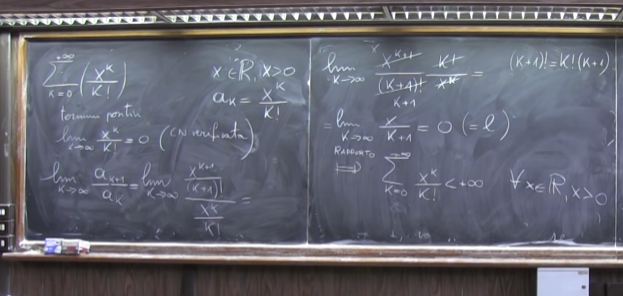 \sum_{K=0}^{+\infty} \left( \frac{x^K}{K!} \right)   x ∈ ℝ, x > 0
a_K = \frac{x^K}{K!}
termini positivi
\lim_{K→∞} \frac{x^K}{K!} = 0 (CN verificata)
\lim_{K→∞} \frac{a_{K+1}}{a_K} = \lim_{K→∞} \frac{\frac{x^{K+1}}{(K+1)!}}{\frac{x^K}{K!}} =
\lim_{K→∞} \frac{x^{K+1}}{(K+1)!} \frac{K!}{x^K} =   (K+1)! = K!(K+1)
= \lim_{K→∞} \frac{x}{K+1} = 0 (= l)
RAPPORTO
⟹ \sum_{K=0}^{+∞} \frac{x^K}{K!} < +∞   ∀ x ∈ ℝ, x > 0